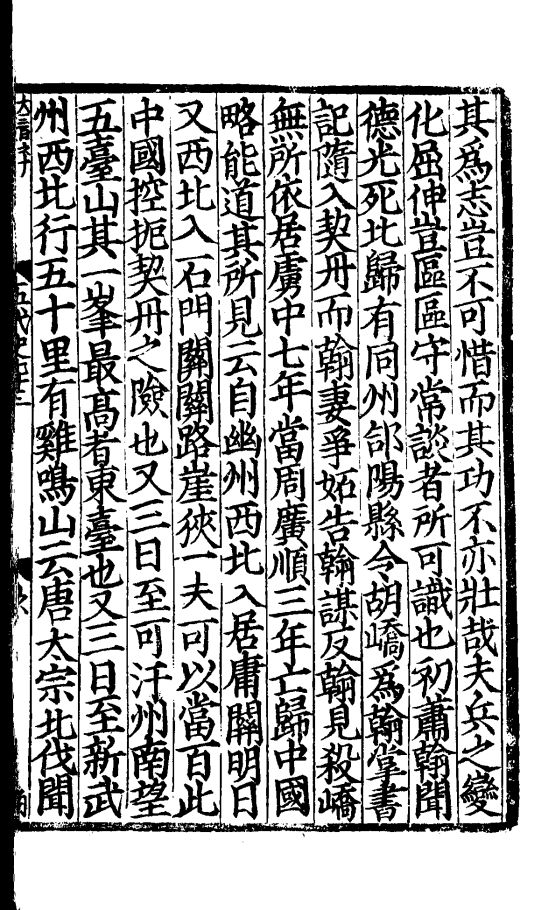 其爲志豈不可惜而其功不亦壯哉夫兵之變
化屈伸豈區區守常談者所可識也初蕭翰聞
德光死北歸有同州郃陽縣令胡嶠爲翰掌書
記隨入契丹而翰妻爭妬告翰謀反翰見殺嶠
無所依居虜中七年當周廣順三年亡歸中國
略能道其所見云自幽州西北入居庸關明日
又西北入石門關關路崖狹一夫可以當百此
中國控扼契丹之險也又三日至可汗州南望
五臺山其一峯最高者東臺也又三日至新武
州西北行五十里有雞鳴山云唐太宗北伐聞
五代史